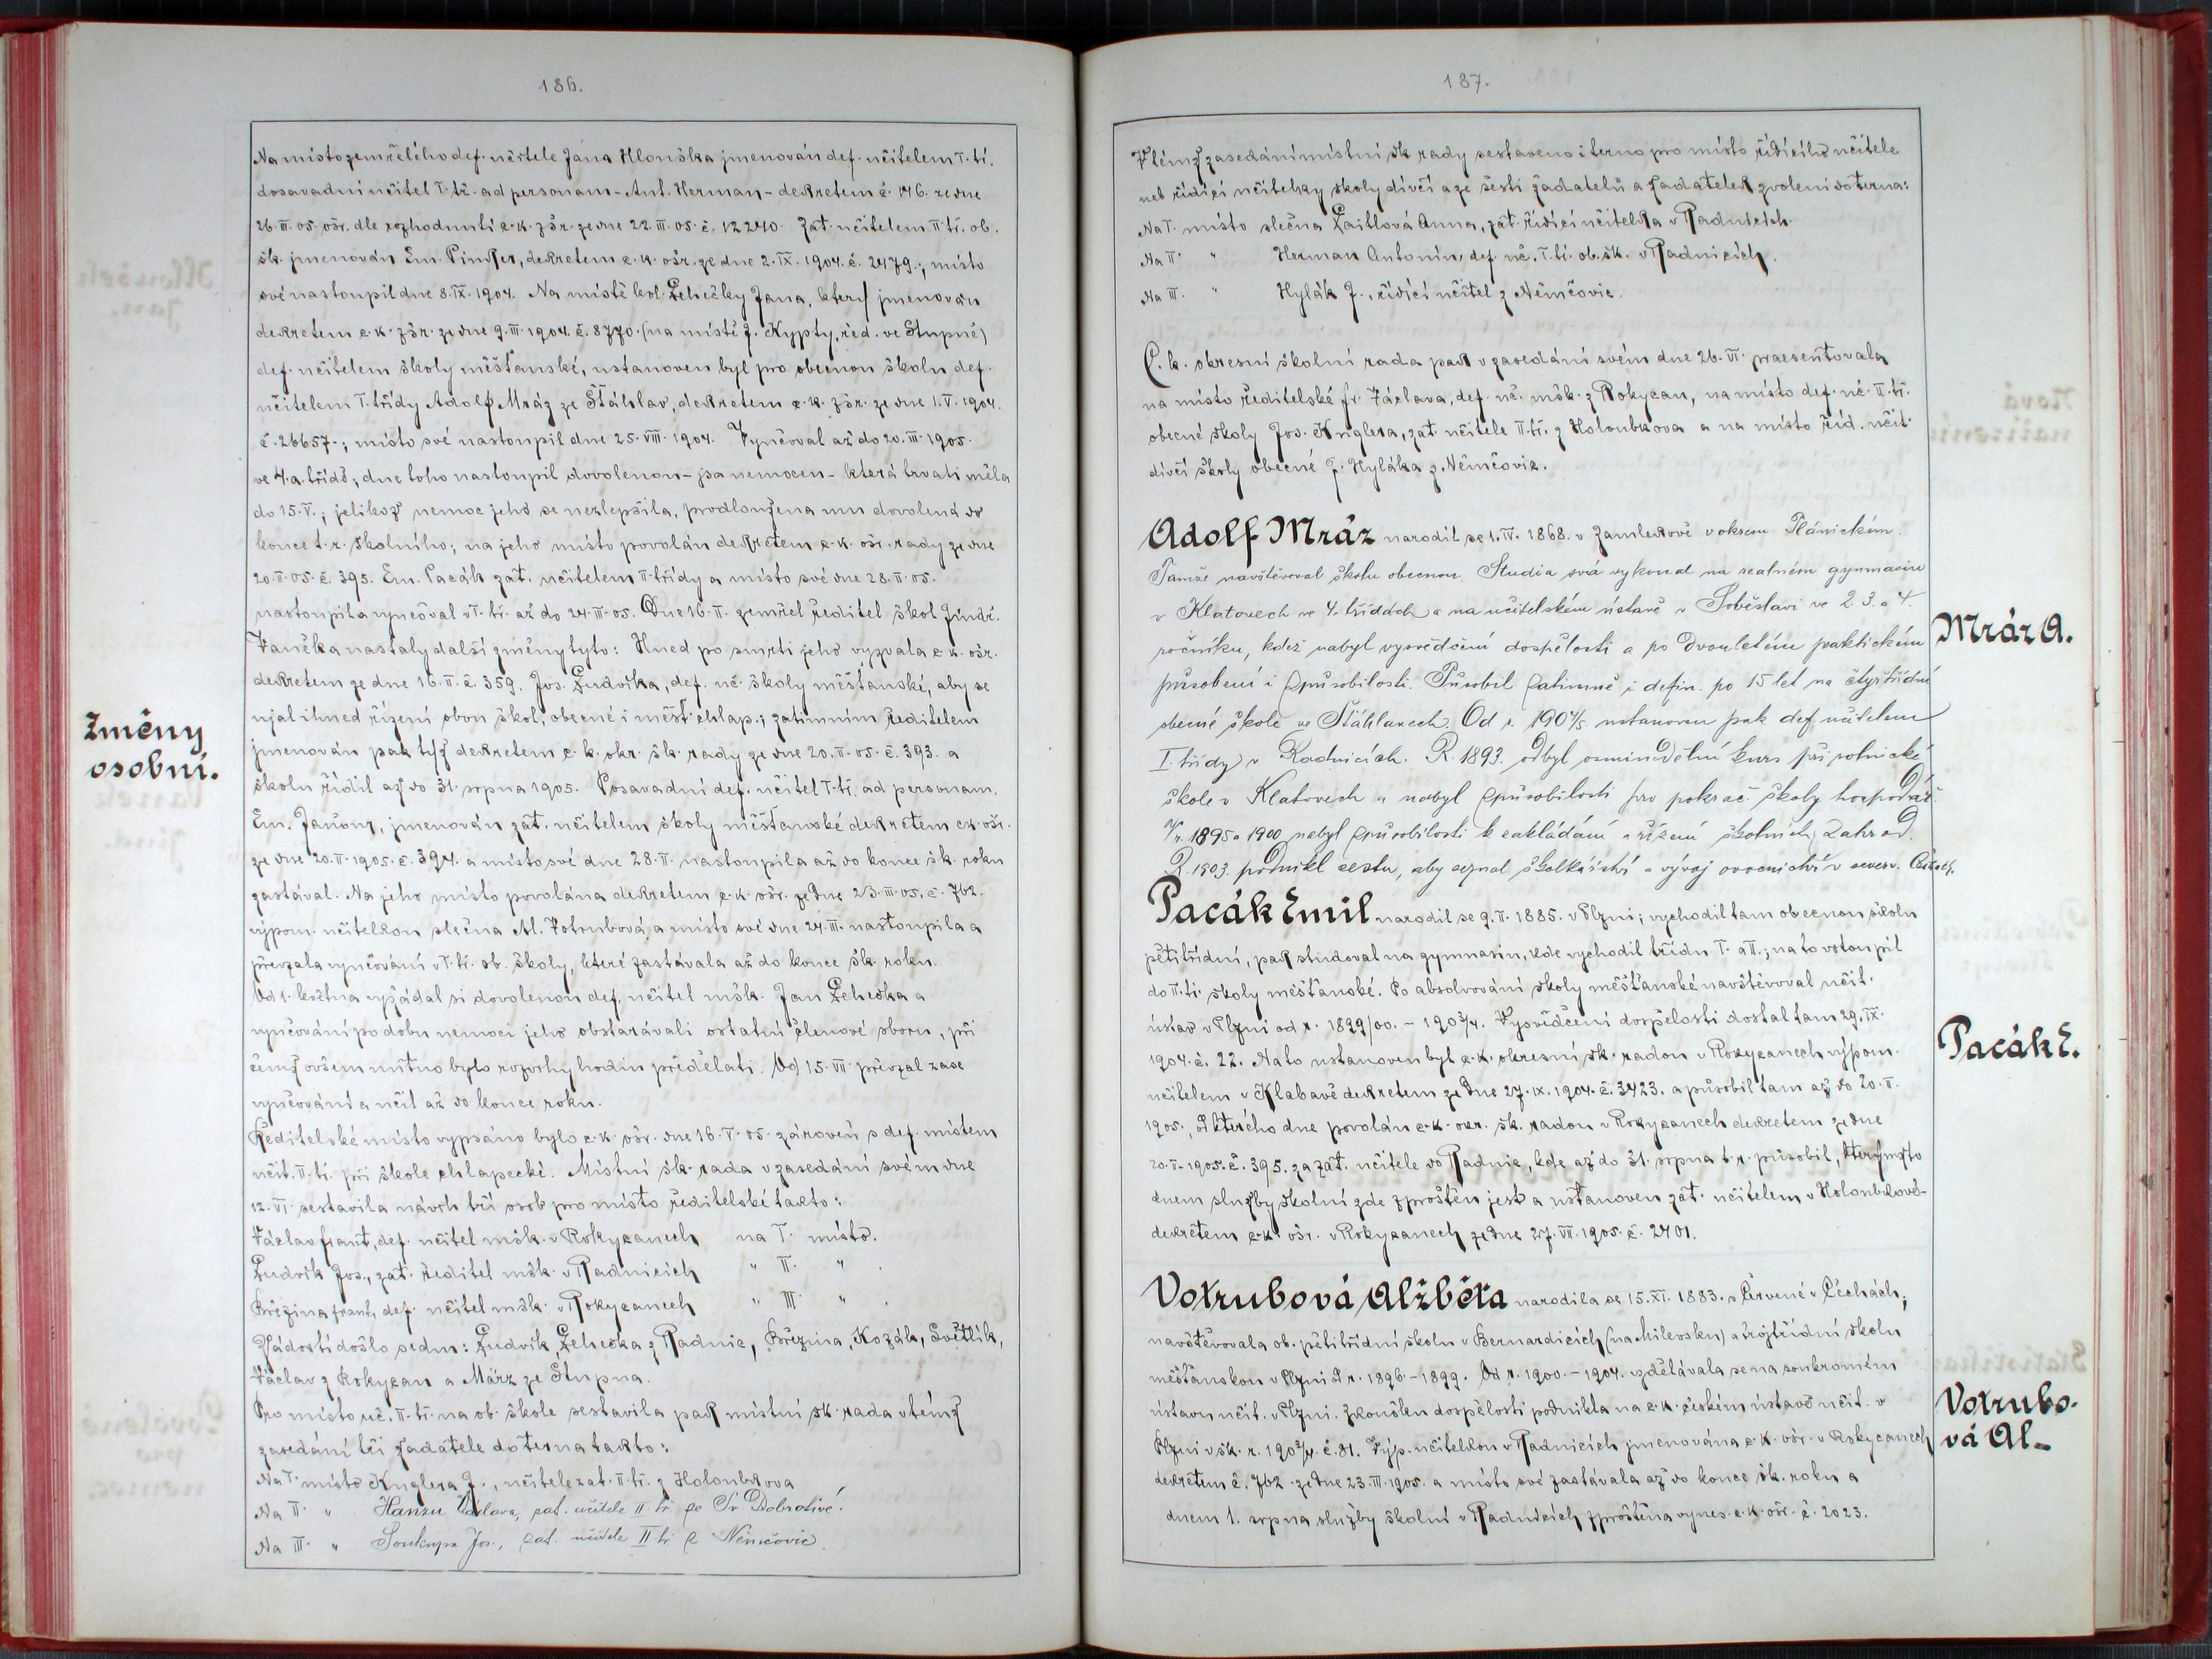 186.
Na místo zemřelého def. učitele Jana Hlouška jmenován def. učitelem I. tř.
dosavadní učitel I. tř. ad personam - Ant. Herman - dekretem č. 146. ze dne
26. III. 05. ošr. dle rozhodnutí c. k. zšr. ze dne 22. III. 05. č. 12240. Zat. učitelem II. tř. ob.
šk. jmenován Em. Pinker, dekretem c. k. ošr. ze dne 2. IX. 1904. č. 2479.; místo
své nastoupil dne 8. IX. 1904. Na místě kol. Lehečky Jana, který jmenován
dekretem c. k. zšr. ze dne 9. III. 1904. č. 8770. (na místě J. Kypty, řed. ve Stupně)
def. učitelem školy měšťanské, ustanoven byl pro obecnou školu def.
učitelem I. třídy Adolf Mráz ze Šťáhlav, dekretem c. k. zšr. ze dne 1. V. 1904.
č. 26657.; místo své nastoupil dne 25. VIII. 1904. Vyučoval až do 20. III. 1905.
ve 4. a. třídě; dne toho nastoupil dovolenou - jsa nemocen - která trvati měla
do 15. V.; jelikož nemoc jeho se nezlepšila, prodloužena mu dovolená do
konce t. r. školního; na jeho místo povolán dekretem c. k. ošr. rady ze dne
20. II. 05. č. 395. Em. Pacák zat. učitelem II. třídy a místo své dne 28. II. 05.
nastoupil a vyučoval v I. tř. až do 24. III. 05. Dne 16. II. zemřel ředitel škol Jindř.
Vaněk a nastaly další změny tyto: Hned po smrti jeho vyzvala c. k. ošr.
dekretem ze dne 16. II. č. 359. Jos. Ludvíka, def. uč. školy měšťanské, aby se
ujal ihned řízení obou škol, obecné i měšť. chlap.; zatimním ředitelem
jmenován pak týž dekretem c. k. okr. šk. rady ze dne 20. II. 05. č. 393. a
školu řídil až do 31. srpna 1905. Dosavadní def. učitel I. tř. ad personam.
Em. Janour, jmenován zat. učitelem školy měšťanské dekretem c. k. ošr.
ze dne 20. II. 1905. č. 394. a místo své dne 28. II. nastoupil a až do konce šk. roku
zastával. Na jeho místo povolána dekretem c. k. ošr. ze dne 23. III. 05. č. 762.
výpom. učitelkou slečna Al. Votrubová, a místo své dne 24. III. nastoupila a
převzala vyučování v I. tř. ob. školy, které zastávala až do konce šk. roku.
Od 1. května vyžádal si dovolenou def. učitel mšk. Jan Lehečka a
vyučování po dobu nemoci jeho obstarávali ostatní členové sboru, při
čemž ovšem nutno bylo rozvrhy hodin předělati. Od 15. VII. převzal zase
vyučování a učil až do konce roku.
Ředitelské místo vypsáno bylo c. k. ošr. dne 16. V. 05. zároveň s def. místem
učit. II. tř. při škole chlapecké. Místní šk. rada v zasedání svém dne
12. VI. sestavila návrh tří osob pro místo ředitelské takto:
Václav Frant., def. učitel mšk. v Rokycanech na I. místo.
Ludvík Jos., zat. ředitel mšk. v Radnicích " II. " .
Březina Frant., def. učitel mšk. v Rokycanech " III. " .
Žádostí došlo sedm: Ludvík, Lehečka z Radnic, Březina, Kozák, Světlík,
Václav z Rokycan a März ze Stupna.
Pro místo uč. II. tř. na ob. škole sestavila pak místní šk. rada v témž
zasedání tři žadatele do terna takto:
Na I. místo Knglera J., učitele zat. II. tř. z Holoubkova
Na II. " Hanzu Václava, zat. učitele II. tř. ze Sv. Dobrotivé.
Na III. " Soukupa Jos., zat. učitele II tř. z Němčovic.
Změny
osobní.
187.
V témž zasedání místní šk. rady sestaveno i terno pro místo řídícího učitele
neb řídící učitelky školy dívčí a ze šesti žadatelů a žadatelek zvoleni do terna:
Na I. místo slečna Laitlová Anna, zat. řídící učitelka v Radnicích.
Na II. " Herman Antonín, def. uč. I. tř. ob. šk. v Radnicích.
Na III. " Hylák J., řídící učitel z Němčovic.
C. k. okresní školní rada pak v zasedání svém dne 26. VI. praesentovala
na místo ředitelské Fr. Václava, def. uč. mšk. z Rokycan, na místo def. uč. II. tř.
obecné školy Jos. Knglera, zat. učitele II. tř. z Holoubkova a na místo říd. učit.
dívčí školy obecné J. Hyláka z Němčovic.
Adolf Mráz narodil se 1. IV. 1868. v Zamlekově v okresu Plánickém.
Tamže navštěvoval školu obecnou. Studia svá vykonal na reálném gymnasiu
v Klatovech ve 4. třídách a na učitelském ústavě v Soběslavi ve 2. 3. a 4.
ročníku, kdež nabyl vysvědčení dospělosti a po dvouletém praktickém
působení i způsobilosti. Působil zatimně i defin. po 15 let na čtyřtřídní
obecné škole ve Šťáhlavech. Od r. 1904/5 ustanoven pak def. učitelem
I. třídy v Radnicích. R. 1893. odbyl osminedělní kurs při rolnické
škole v Klatovech a nabyl způsobilosti pro pokrač. školy hospodář.
V r. 1895 a 1900 nabyl způsobilosti k zakládání a řízení školních zahrad.
R. 1903. podnikl cestu, aby seznal školkařství a vývoj ovocnictví v severv. Čechách.
Pacák Emil narodil se 9. II. 1885. v Plzni; vychodil tam obecnou školu
pětitřídní, pak studoval na gymnasiu, kde vychodil třídu I. a II.; na to vstoupil
do II. tř. školy měšťanské. Po absolvování školy měšťanské navštěvoval učit.
ústav v Plzni od r. 1899/00. - 1903/4. Vysvědčení dospělosti dostal tam 29. IX.
1904. č. 22. Na to ustanoven byl c. k. okresní šk. radou v Rokycanech výpom.
učitelem v Klabavě dekretem ze dne 27. IX. 1904. č. 3423. a působil tam až do 20. II.
1905., kteréhož dne povolán c. k. okr. šk. radou v Rokycanech dekretem ze dne
20. II. 1905. č. 395. za zat. učitele do Radnic, kde až do 31. srpna t. r. působil, kterýmžto
dnem služby školní zde zproštěn jest a ustanoven zat. učitelem v Holoubkově
dekretem c. k. ošr. v Rokycanech ze dne 27. VII. 1905. č. 2401.
Votrubová Alžběta narodila se 15. XI. 1883. v Červené v Čechách;
navštěvovala ob. pětitřídní školu v Bernardicích (na Milevsku) a trojtřídní školu
měšťanskou v Plzni od r. 1896. - 1899. Od r. 1900. - 1904. vzdělávala se na soukromém
ústavu učit. v Plzni. Zkoušku dospělosti podnikla na c. k. českém ústavě učit. v
Plzni v šk. r. 1903/4. č. 81. Výp. učitelkou v Radnicích jmenována c. k. ošr. v Rokycanech
dekretem č. 762. ze dne 23. III. 1905. a místo své zastávala až do konce šk. roku a
dnem 1. srpna služby školní v Radnicích zproštěna vynes. c. k. ošr. č. 2023.
Mráz A.
Pacák E.
Votrubo-
vá Al-